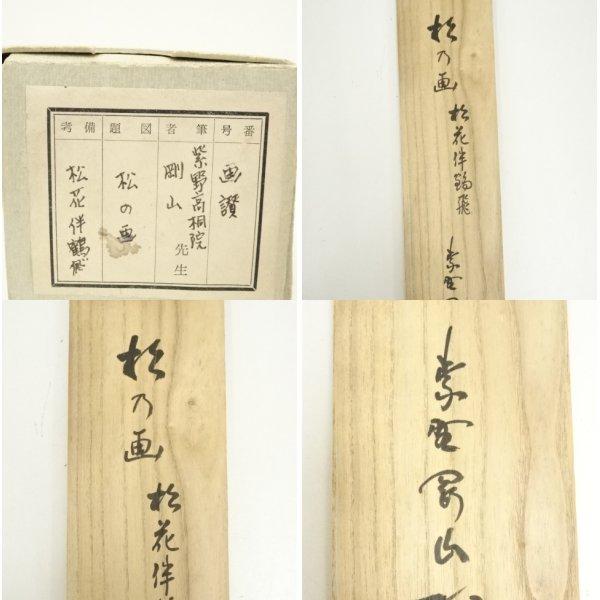 番号
筆者
図題
備考
画讃
紫野高桐院
剛山 先生
松の画
松花伴鶴飛
松乃画 松花伴鶴飛
紫野
松乃画 松花伴
紫野剛山